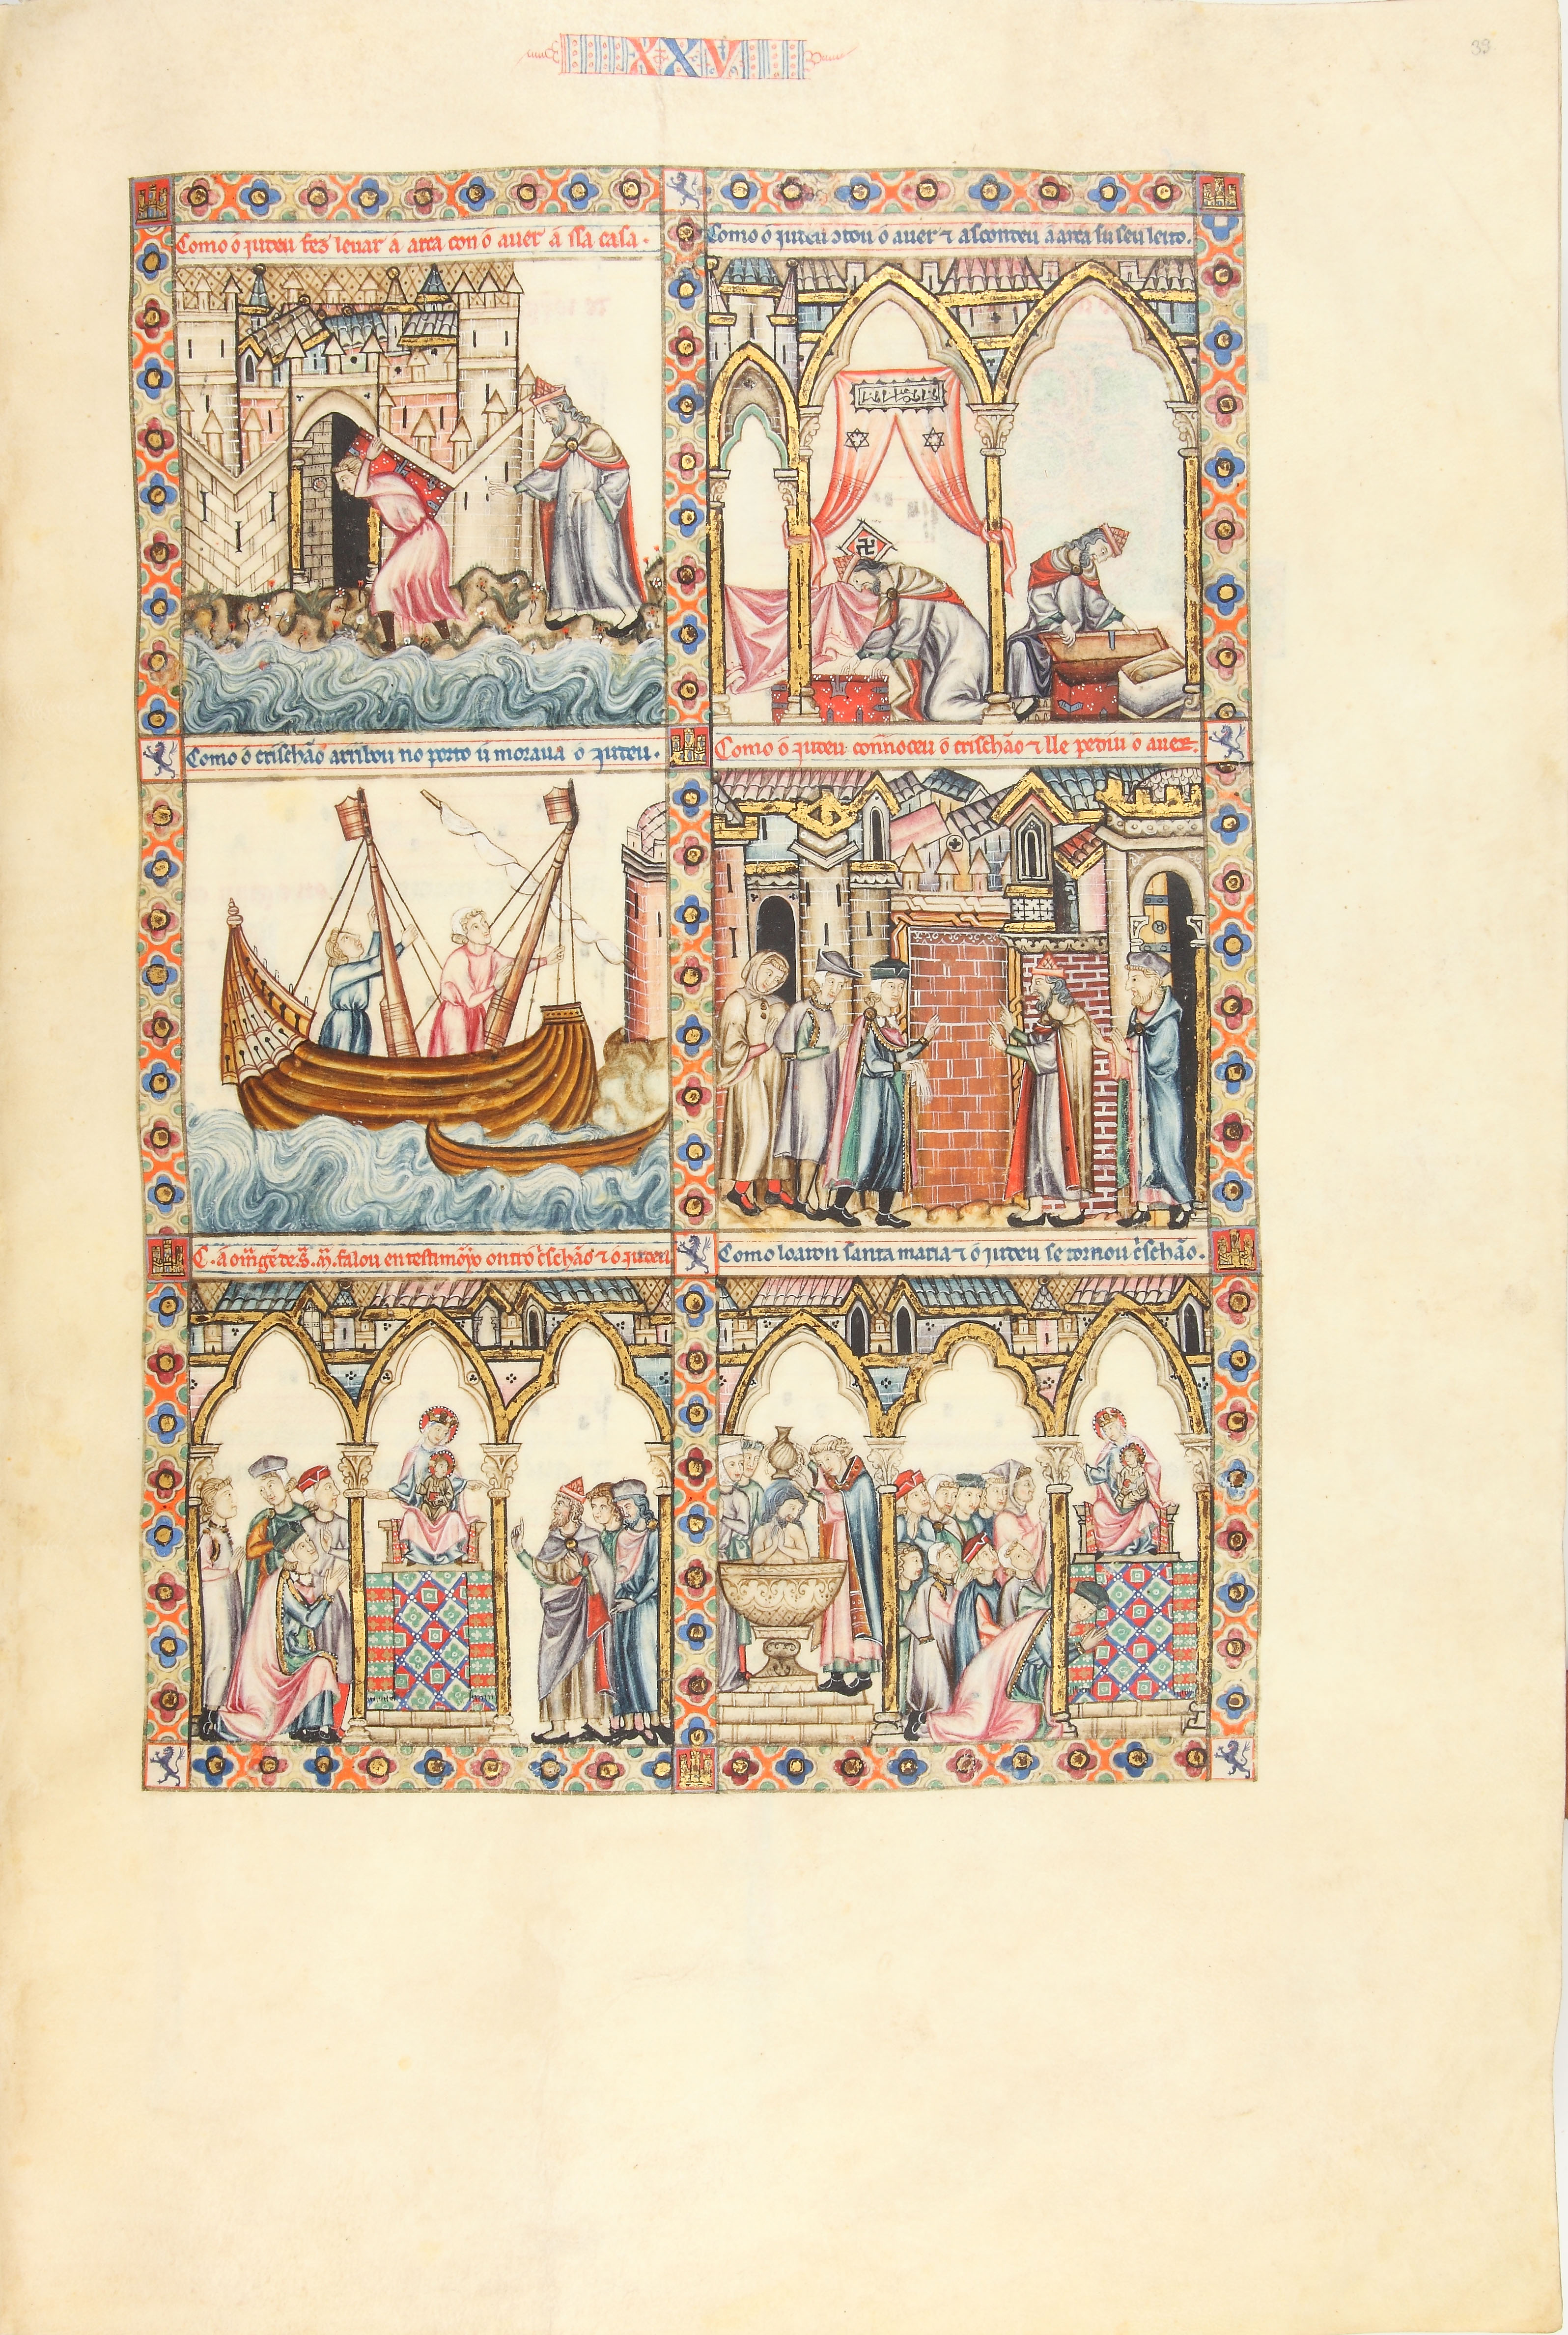 XXV
39
Como o judeu fez levar a arca con o aver a ssa casa.
Como o judeu ɔtou o aver ⁊ asconđeu a arca su seu leito.
Como o crischão arribou no porto u morava o judeu.
Como o judeu connoceu o crischão ⁊ lle pediu o aver.
C. a omagẽ de .S. M̃. falou en testimõyo ontro c̃schão ⁊ o judeu
Como loaron santa maria ⁊ o judeu se tornou c̃schão.